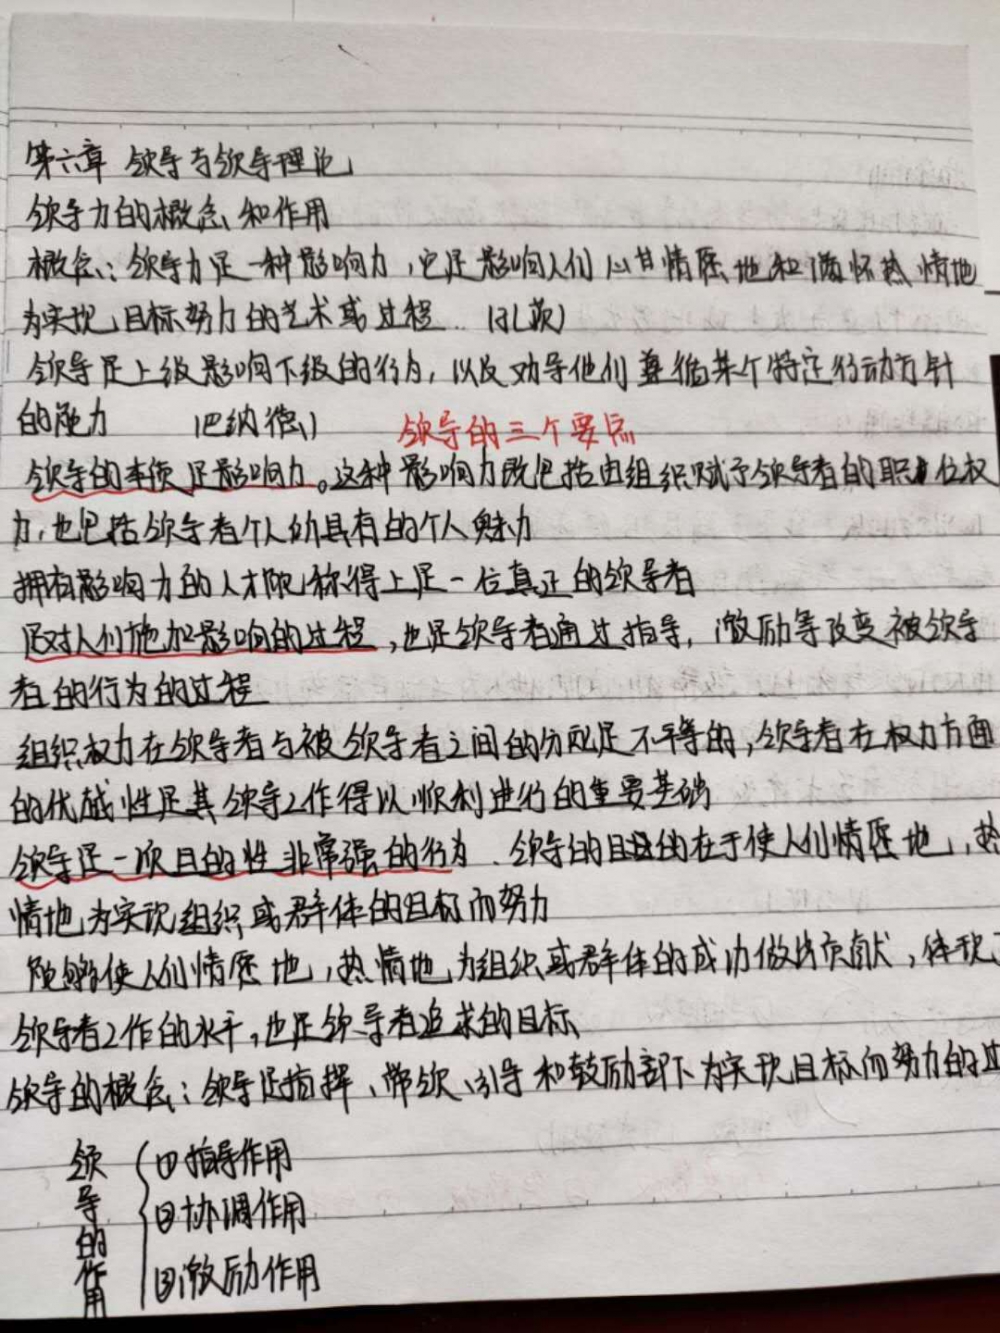 第六章 领导与领导理论
领导力的概念和作用
概念:领导力是一种影响力,它是影响人们心甘情愿地和满怀热情地
为实现目标努力的艺术或过程. (孔茨)
领导是上级影响下级的行为,以及劝导他们遵循某个特定行动方针
的能力 (巴纳德) 领导的三个要点
领导的本质是影响力。这种影响力既包括由组织赋予领导者的职位权
力,也包括领导者个人所具有的个人魅力
拥有影响力的人才能称得上是一位真正的领导者
是对人们施加影响的过程,也是领导者通过指导,激励等改变被领导
者的行为的过程
组织权力在领导者与被领导者之间的分配是不平等的,领导者在权力方面
的优越性是其领导工作得以顺利进行的重要基础
领导是一项目的性非常强的行为.领导的目的在于使人们情愿地,热
情地为实现组织或群体的目标而努力
能够使人们情愿地,热情地为组织或群体的成功做出贡献,体现了
领导者工作的水平,也是领导者追求的目标
领导的概念:领导是指挥、带领、引导和鼓励部下为实现目标而努力的过
领导的作用
①指导作用
②协调作用
③激励作用